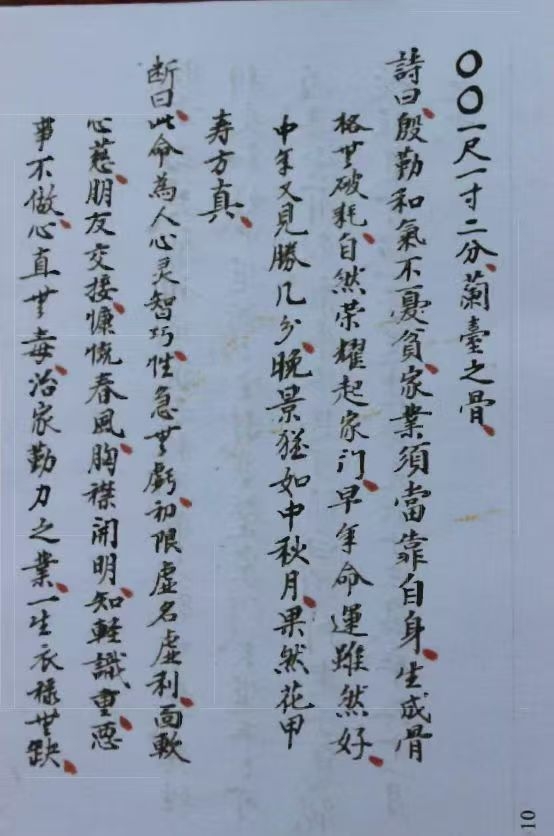 〇〇一尺一寸二分、蘭臺之骨、
詩曰、殷勤和氣不憂貧、家業須當靠自身、生成骨
格世破耗、自然荣耀起家门、早年命運雖然好、
中年又見勝几分、晚景猶如中秋月、果然花甲
寿方真、
断曰、此命為人心灵智巧、性急世虧、初限虛名虛利、面軟
心慈、朋友交接、慷慨春風、胸襟開明、知軽識重、惡
事不做、心直世毒、治家勤力之業、一生衣祿世缺、
10